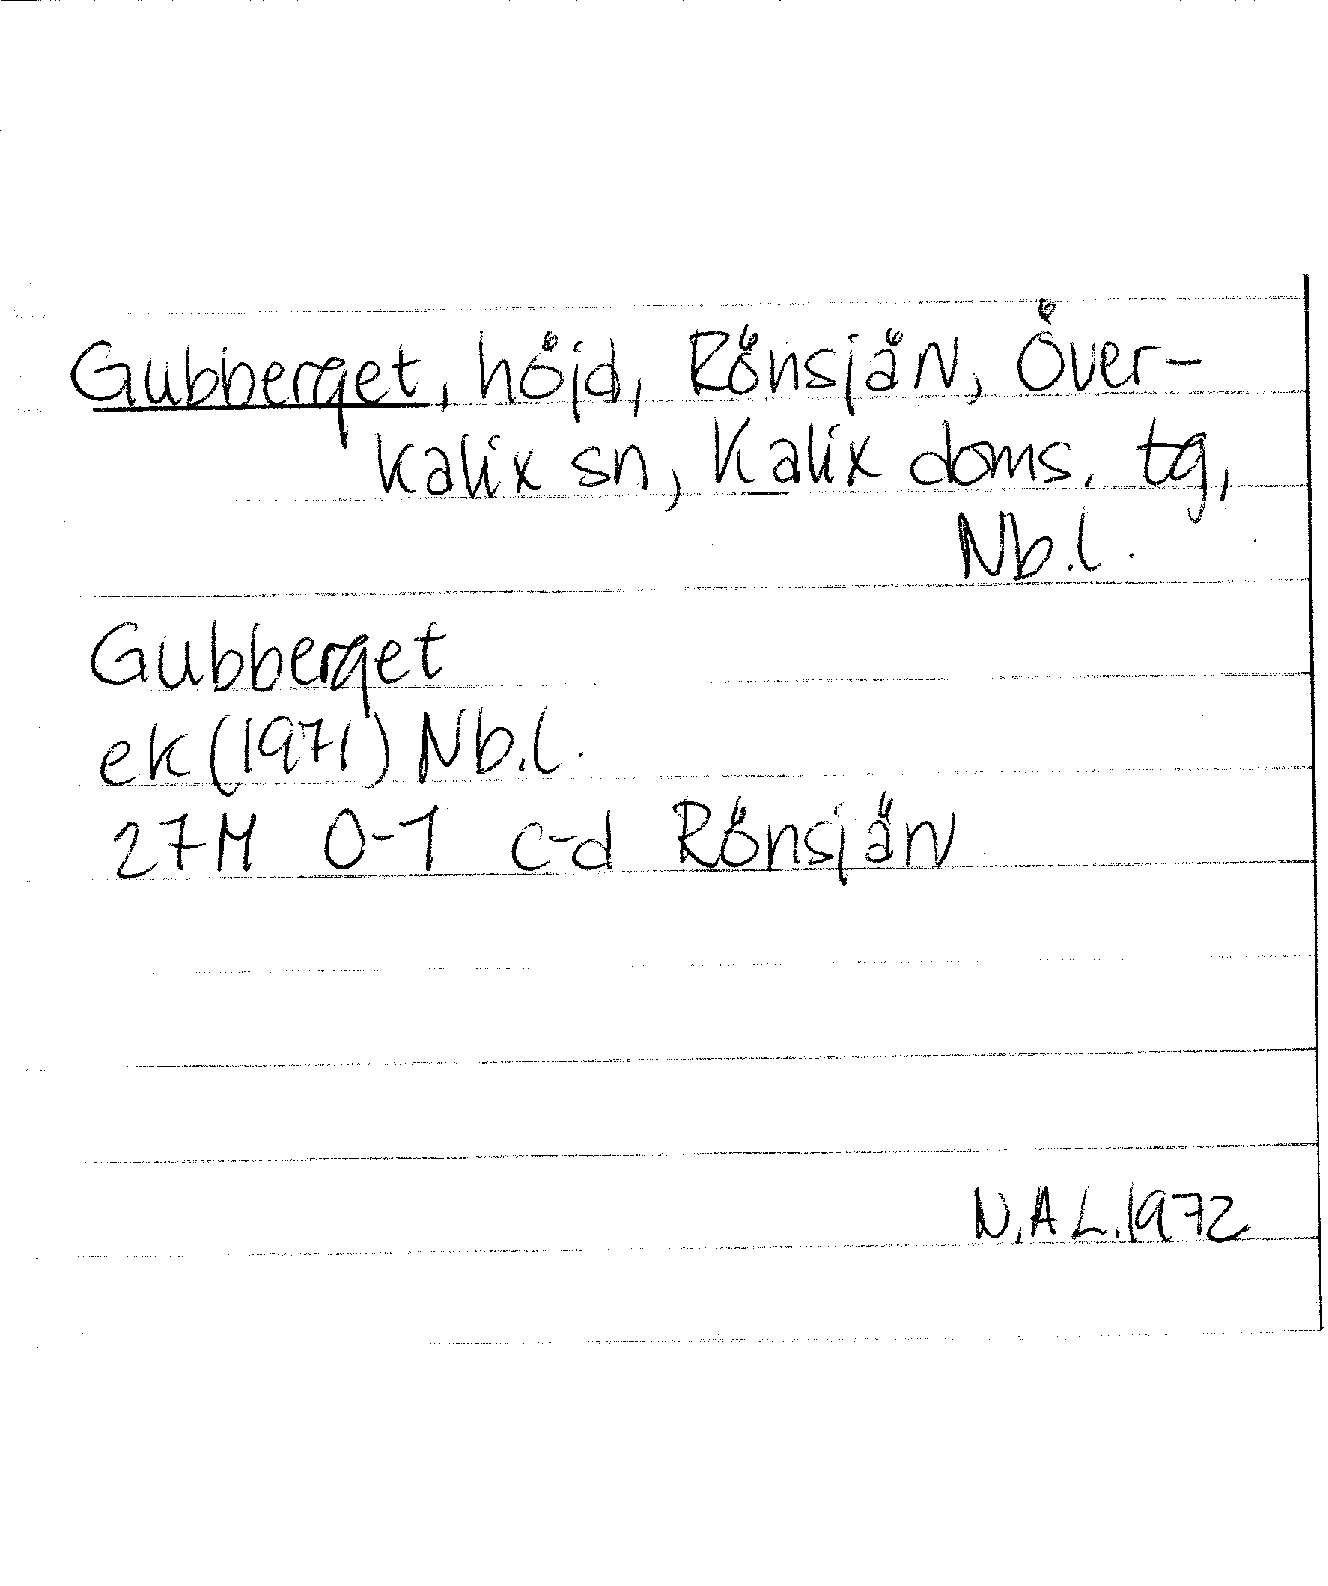 Gubberget, höjd, Rönsjärv, Över-
kalix sn, Kalix doms. tg,
Nb.l.
Gubberget
ek (1971) Nb.l.
27M 0-1 c-d Rönsjärv
N.A L.1972